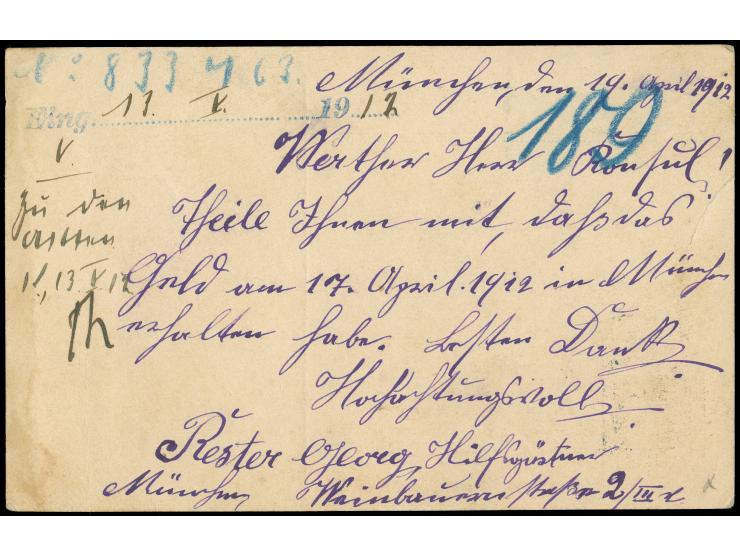 No: 833 4 63.
München, den 19. April 1912
Eing. 11. V. 1912
189
Werther Herr Konsul!
V.
Theile Ihnen mit, daß das
zu den
Akten
Geld am 17. April. 1912 in München
13. V 12
erhalten habe. besten Dank
Hochachtungsvoll
Rester Georg Hilfsgärtner
München Weinbauernstraße 2/III r